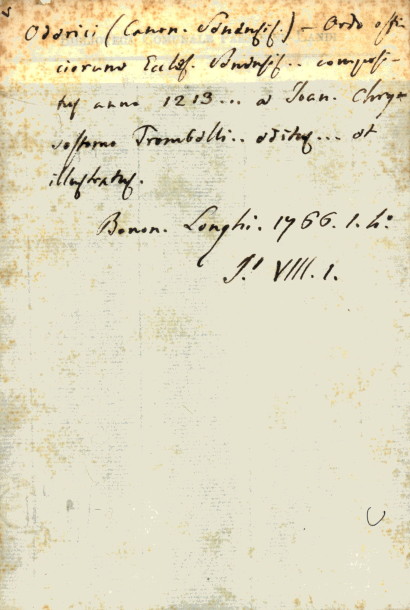 Odorici (Canon. Senensis.) – Ordo offi-
ciorum Eccles. Senensis.. composi-
tus anno 1213... a Joan. Chry-
sostomo Trombelli.. editus... et
illustratus.
Bonon. Longhi. 1766. 1. h.º
J.! VIII. 1.